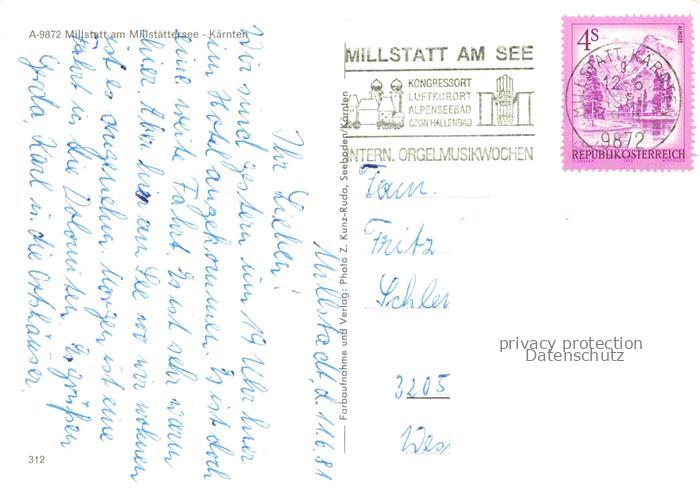 A-9872 Millstatt am Millstättersee - Kärnten
Millstadt, d. 11.6.81
Ihr Lieben!
Wir sind gestern um 19 Uhr hier
im Hotel angekommen. Es ist doch
eine weite Fahrt. Es ist sehr warm
hier. Aber hier am See wo wir wohnen
ist es angenehm. Morgen ist eine
Fahrt in die Dolomiten. Es grüßen
Karl
312
Farbaufnahme und Verlag: Photo Z. Kunz-Ruda, Seeboden/Kärnten
MILLSTATT AM SEE
KONGRESSORT
LUFTKURORT
ALPENSEEBAD
OZON HALLENBAD
INTERN. ORGELMUSIKWOCHEN
MILLSTATT, KÄRNTEN
9872
4S
ALMSEE
REPUBLIK ÖSTERREICH
Fam.
Fritz
Schle
3205
privacy protection
Datenschutz